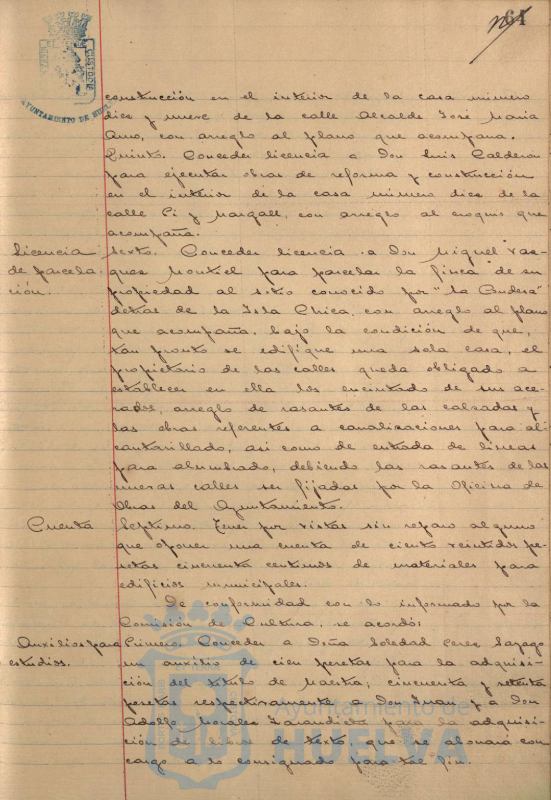 64
AYUNTAMIENTO DE HUELVA
construcción en el interior de la casa número
diez y nueve de la calle Alcalde José Maria
Amo, con arreglo al plano que acompaña.
Quinto. Conceder licencia a Don Luis Calderon
para ejecutar obras de reforma y construcción
en el interior de la casa número diez de la
calle Pi y Margall, con arreglo al croquis que
acompaña.
Licencia de parcelación.
Sexto. Conceder licencia a Don Miguel Vaz-
quez Montiel para parcelar la finca de su
propiedad al sitio conocido por "La
detras de la Isla Chica, con arreglo al plano
que acompaña, bajo la condición de que,
tan pronto se edifique una sola casa, el
propietario de las calles queda obligado a
establecer en ella los encintado de sus ace-
rados, arreglo de rasantes de las calzadas y
las obras referentes a canalizaciones para al-
cantarillado, asi como de entrada de lineas
para alumbrado, debiendo las rasantes de las
nuevas calles ser fijadas por la Oficina de
Obras del Ayuntamiento.
Cuenta
Septimo. Tener por vistas sin reparo alguno
que oponer una cuenta de ciento veintidos pe-
setas cincuenta centimos de materiales para
edificios municipales.
De conformidad con lo informado por la
Comisión de Cultura, se acordó:
Auxilios para estudios.
Primero. Conceder a Doña Soledad Perez Sayago
un auxilio de cien pesetas para la adquisi-
ción del titulo de Maestra; cincuenta y setenta
pesetas respectivamente a Don Juan y a Don
Adolfo Morales para la adquisi-
ción de libros de texto, que se abonará con
cargo a lo consignado para tal fin.
Ayuntamiento de
HUELVA